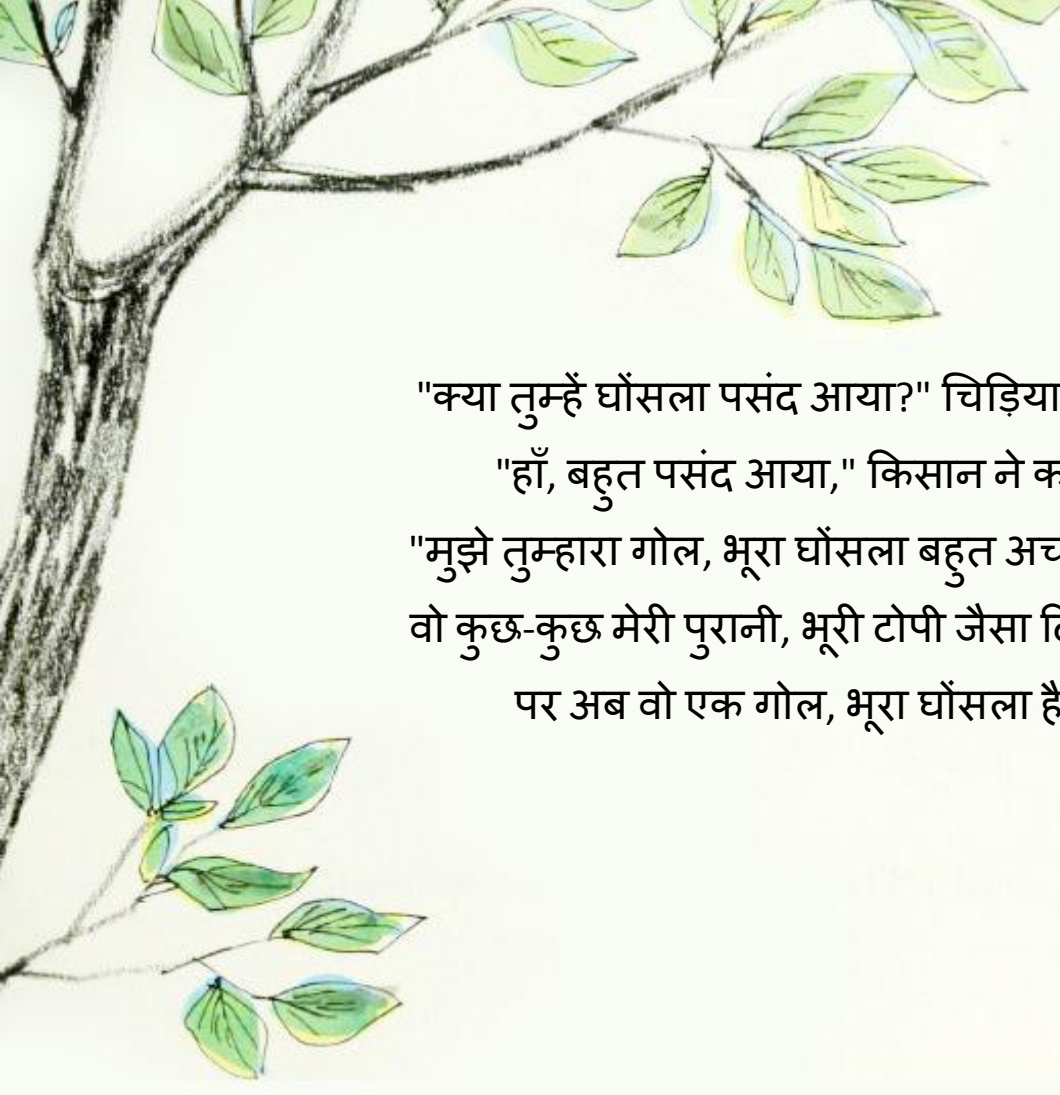 "क्या तुम्हें घोंसला पसंद आया?" चिड़िया
"हाँ, बहुत पसंद आया," किसान ने
"मुझे तुम्हारा गोल, भूरा घोंसला बहुत
वो कुछ-कुछ मेरी पुरानी, भूरी टोपी जैसा
पर अब वो एक गोल, भूरा घोंसला है